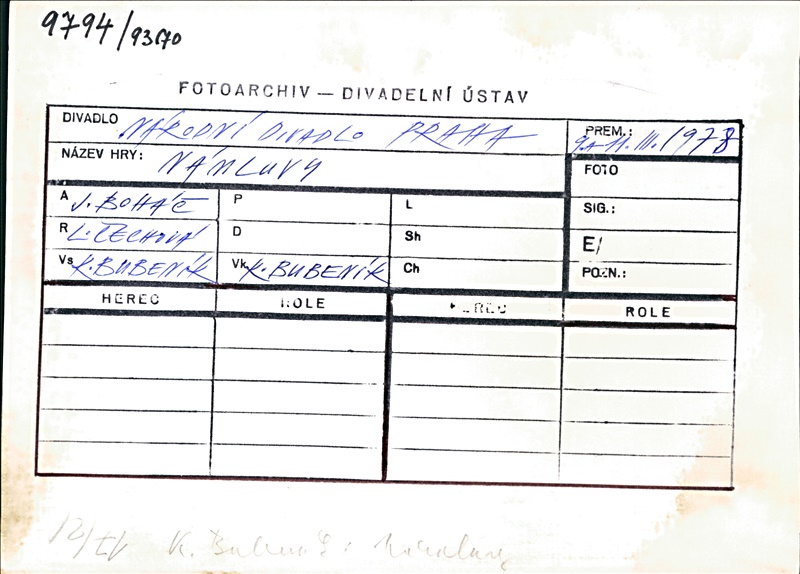 9794/93170
FOTOARCHIV — DIVADELNÍ ÚSTAV
DIVADLO NÁRODNÍ DIVADLO PRAHA
PREM.: 9. A 11. III. 1978
NÁZEV HRY: NÁMLUVY
FOTO
A J. BOHÁČ P L
SIG.:
R L. ČECHOVÁ D Sh
E/
Vs K. BUBENÍK Vk K. BUBENÍK Ch
POZN.:
HEREC ROLE HEREC ROLE
12/IV K.